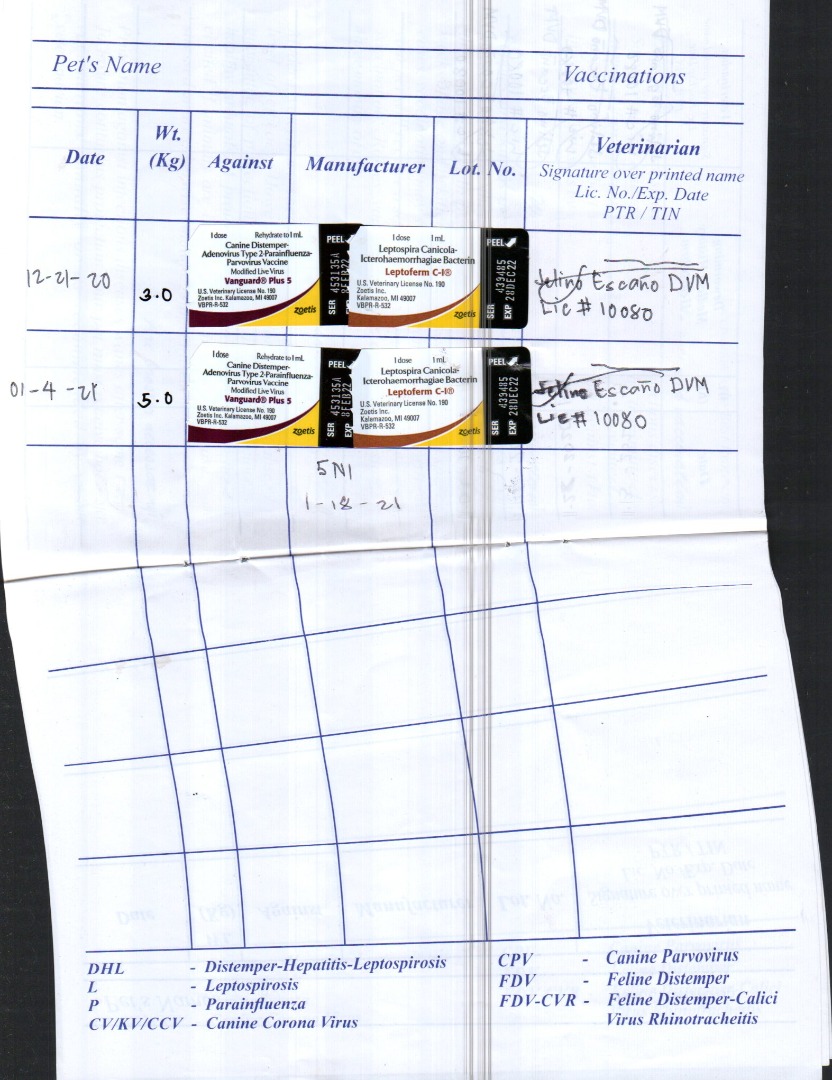 Pet's Name Vaccinations
Date Wt. (Kg) Against Manufacturer Lot. No. Veterinarian
Signature over printed name
Lic. No./Exp. Date
PTR / TIN
12-21-20 3.0
1 dose Rehydrate to 1 mL
Canine Distemper-
Adenovirus Type 2-Parainfluenza-
Parvovirus Vaccine
Modified Live Virus
Vanguard® Plus 5
U.S. Veterinary License No. 190
Zoetis Inc. Kalamazoo, MI 49007
VBPR-R-532
zoetis
PEEL
SER 453135A
EXP 8FEB22
1 dose 1 mL
Leptospira Canicola-
Icterohaemorrhagiae Bacterin
Leptoferm C-I®
U.S. Veterinary License No. 190
Zoetis Inc.
Kalamazoo, MI 49007
VBPR-R-532
zoetis
PEEL
SER 439485
EXP 28DEC22
Escaño DVM
Lic # 10080
01-4-21 5.0
1 dose Rehydrate to 1 mL
Canine Distemper-
Adenovirus Type 2-Parainfluenza-
Parvovirus Vaccine
Modified Live Virus
Vanguard® Plus 5
U.S. Veterinary License No. 190
Zoetis Inc. Kalamazoo, MI 49007
VBPR-R-532
zoetis
PEEL
SER 453135A
EXP 8FEB22
1 dose 1 mL
Leptospira Canicola-
Icterohaemorrhagiae Bacterin
Leptoferm C-I®
U.S. Veterinary License No. 190
Zoetis Inc.
Kalamazoo, MI 49007
VBPR-R-532
zoetis
PEEL
SER 439485
EXP 28DEC22
Escaño DVM
Lic # 10080
5N1
1-18-21
DHL - Distemper-Hepatitis-Leptospirosis
L - Leptospirosis
P - Parainfluenza
CV/KV/CCV - Canine Corona Virus
CPV - Canine Parvovirus
FDV - Feline Distemper
FDV-CVR - Feline Distemper-Calici
Virus Rhinotracheitis